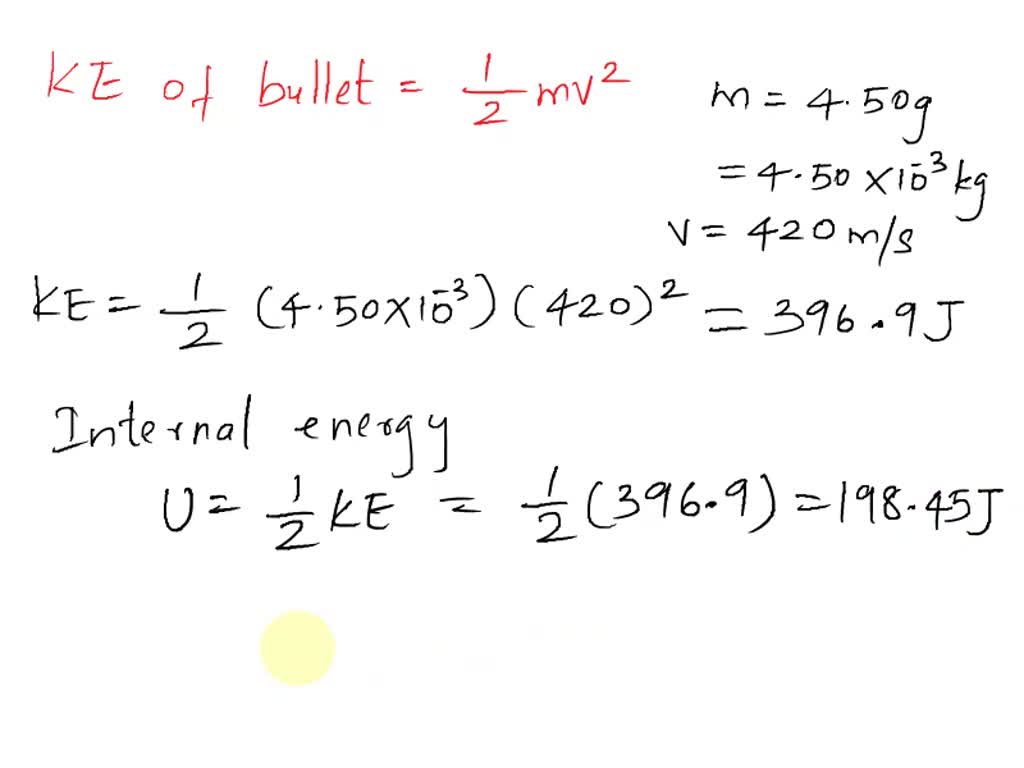 KE of bullet = 1/2 mv²
m = 4.50g
= 4.50 x 10⁻³ kg
v = 420 m/s
KE = 1/2 (4.50x10⁻³) (420)² = 396.9J
Internal energy
U = 1/2 KE = 1/2 (396.9) = 198.45J